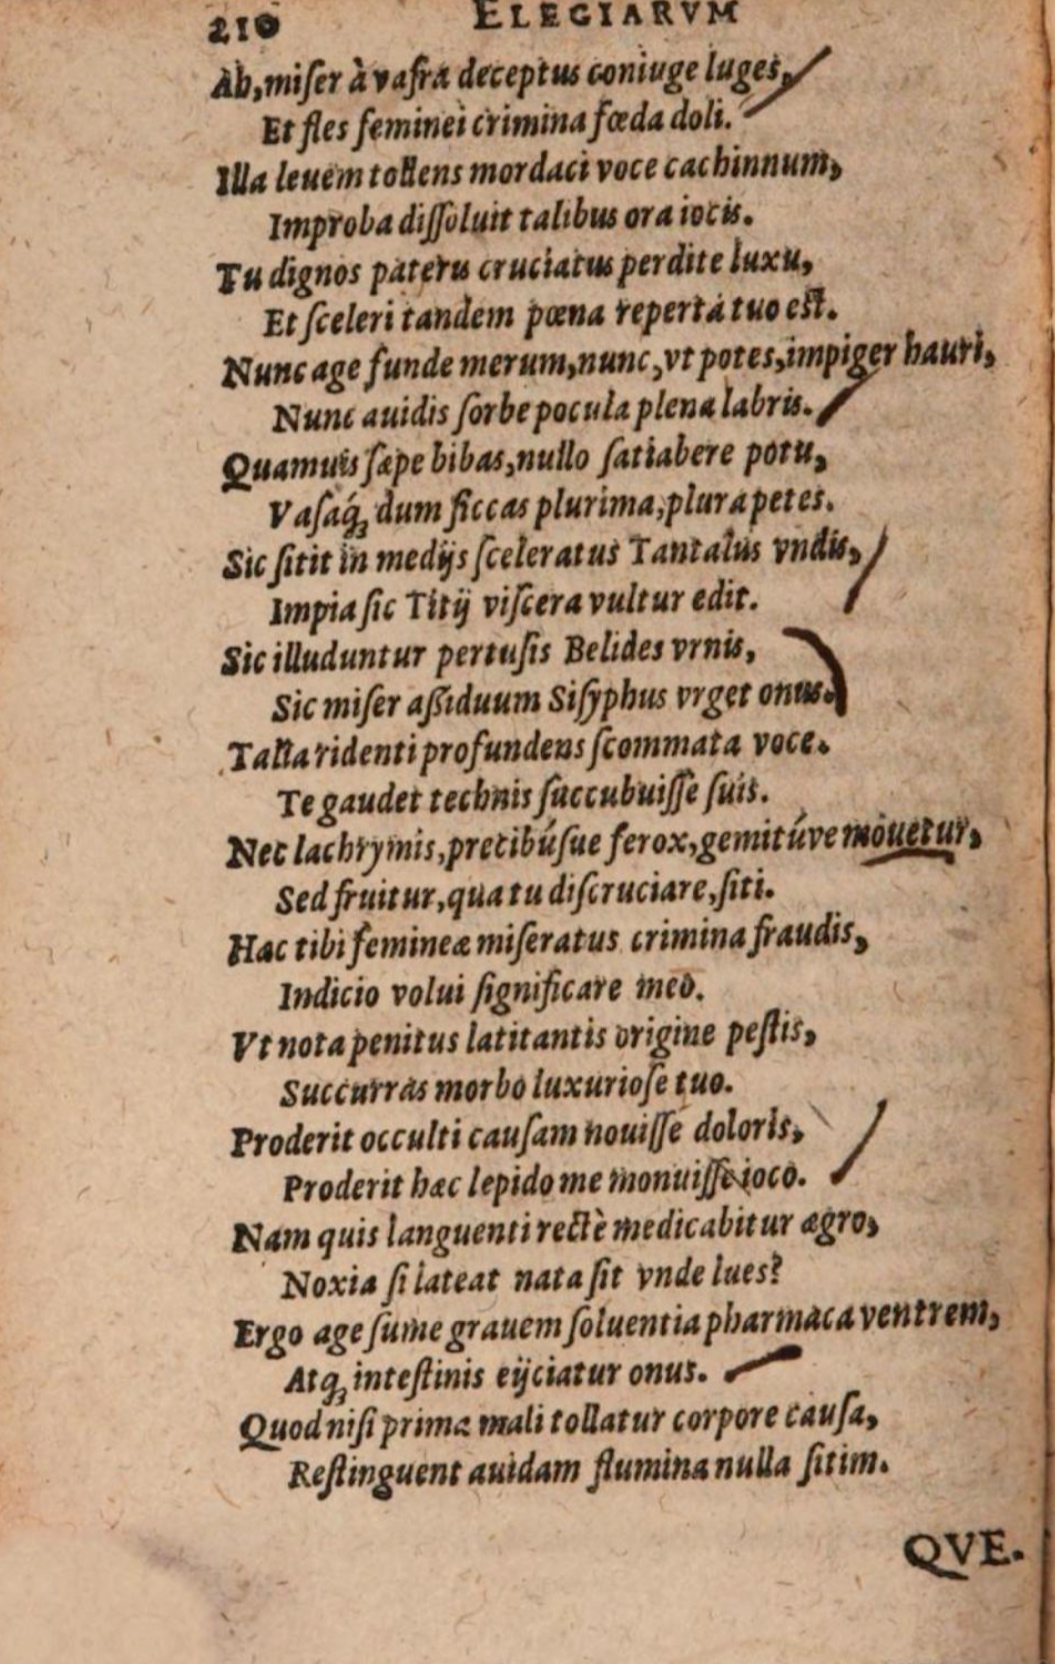 210 ELEGIARVM
Ah, miſer à vafra deceptus coniuge luges,
Et fles feminei crimina fœda doli.
Illa leuem tollens mordaci voce cachinnum,
Improba diſſoluit talibus ora iocis.
Tu dignos pateris cruciatus perdite luxu,
Et ſceleri tandem pœna reperta tuo eſt.
Nunc age funde merum, nunc, vt potes, impiger hauri,
Nunc auidis ſorbe pocula plena labris.
Quamuis ſæpe bibas, nullo ſatiabere potu,
Vaſáq; dum ſiccas plurima, plura petes.
Sic ſitit in medijs ſceleratus Tantalus vndis,
Impia ſic Titij viſcera vultur edit.
Sic illuduntur pertuſis Belides vrnis,
Sic miſer aßiduum Siſyphus vrget onus.
Talia ridenti profundens ſcommata voce.
Te gaudet technis ſuccubuiſſe ſuis.
Nec lachrymis, precibúſue ferox, gemitúve mouetur,
Sed fruitur, qua tu diſcruciare, ſiti.
Hac tibi femineæ miſeratus crimina fraudis,
Indicio volui ſignificare meo.
Vt nota penitus latitantis origine peſtis,
Succurras morbo luxurioſe tuo.
Proderit occulti cauſam nouiſſe doloris,
Proderit hæc lepido me monuiſſe ioco.
Nam quis languenti rectè medicabitur ægro,
Noxia ſi lateat nata ſit vnde lues?
Ergo age ſume grauem ſoluentia pharmaca ventrem,
Atq; inteſtinis eijciatur onus.
Quod niſi prima mali tollatur corpore cauſa,
Reſtinguent auidam flumina nulla ſitim.
QVE.